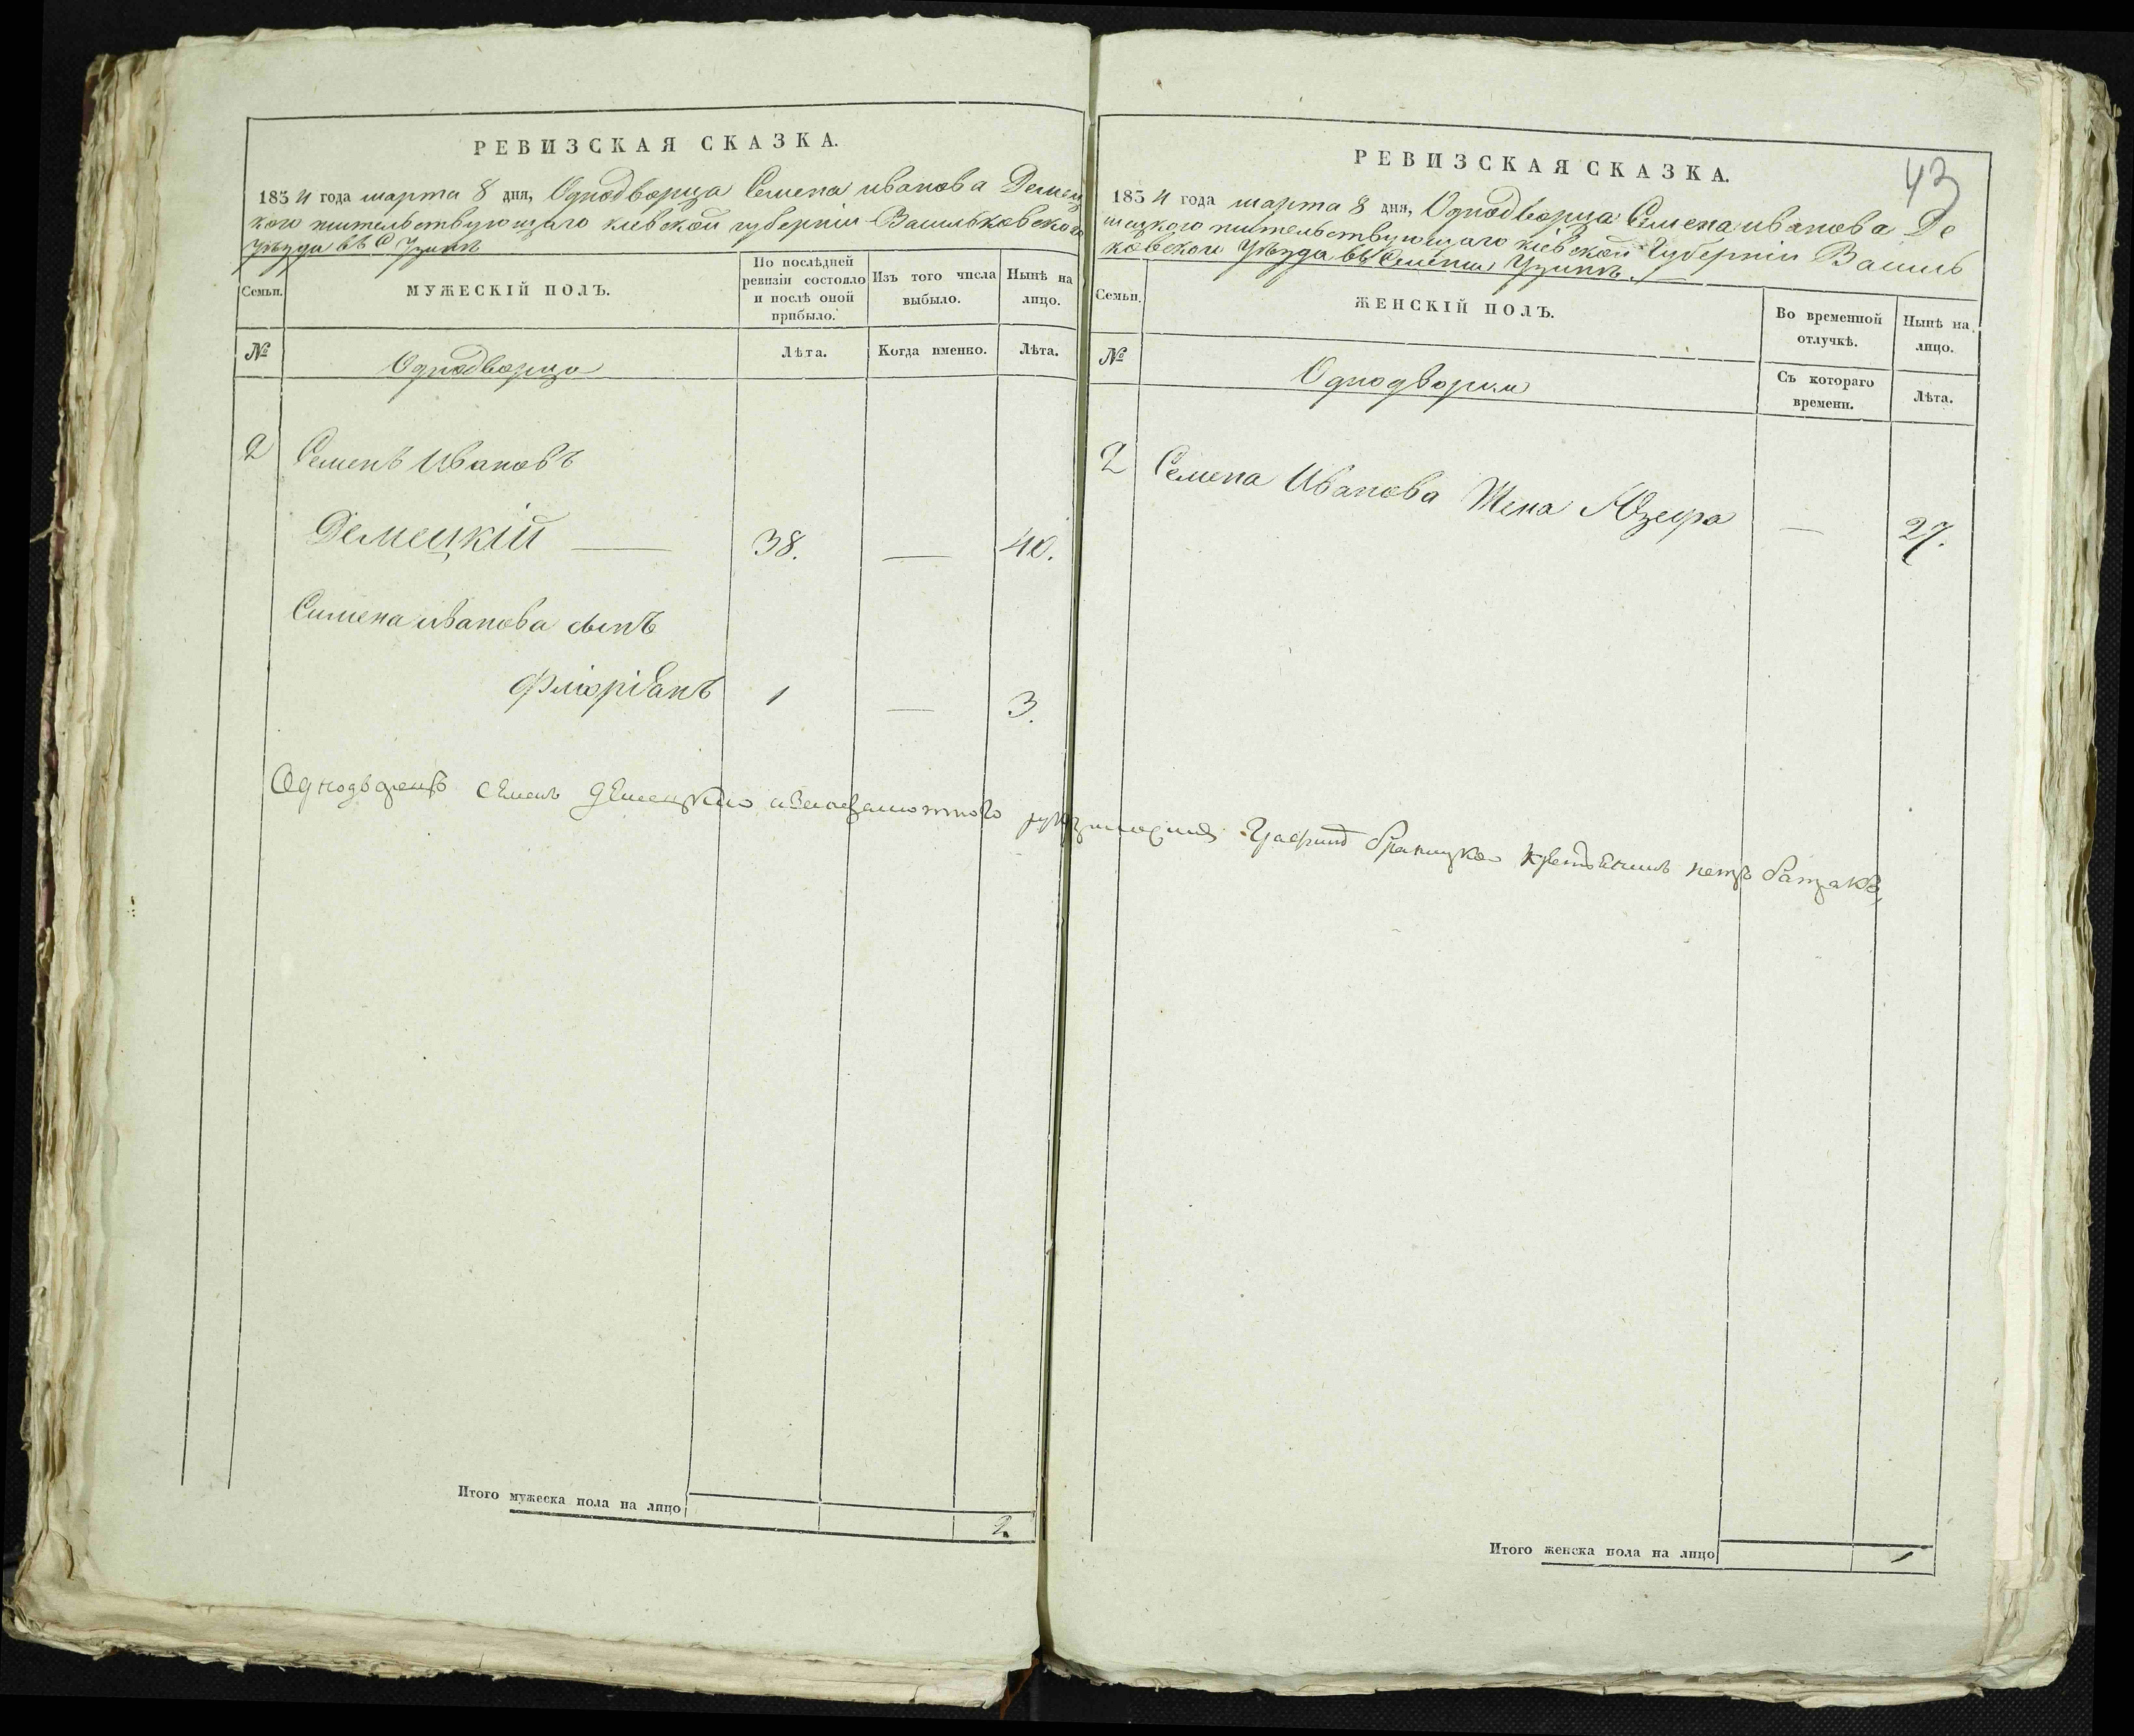 РЕВИЗСКАЯ СКАЗКА.
1834 года марта 8 дня, Однодворца Семена иванова Демец
кого жительствующаго киевской губерніи Васильковского
Уѣзда въ С Узинѣ
Семьи.
МУЖЕСКІЙ ПОЛЪ.
По послѣдней ревизіи состояло и послѣ оной прибыло.
Изъ того числа выбыло.
Нынѣ на лицо.
№
Однодворцы
Лѣта.
Когда именно.
Лѣта.
2 Семенъ Ивановъ
Демецкій — 38. — 40.
Симена иванова сынъ
Фліоріанъ 1 — 3.
Однодворецъ Семенъ Демецкий
Итого мужеска пола на лицо 2.
43
РЕВИЗСКАЯ СКАЗКА.
1834 года марта 8 дня, Однодворца Семена иванова Де
мецкого жительствующаго кіевской Губерніи Василь
ковского Уѣзда въ Селеніи Узинѣ.
Семьи.
ЖЕНСКІЙ ПОЛЪ.
Во временной отлучкѣ.
Нынѣ на лицо.
№
Однодворки
Съ котораго времени.
Лѣта.
2 Семена Иванова Жена Юзефа — 27.
браницкой крестянинъ петръ
Итого женска пола на лицо 1